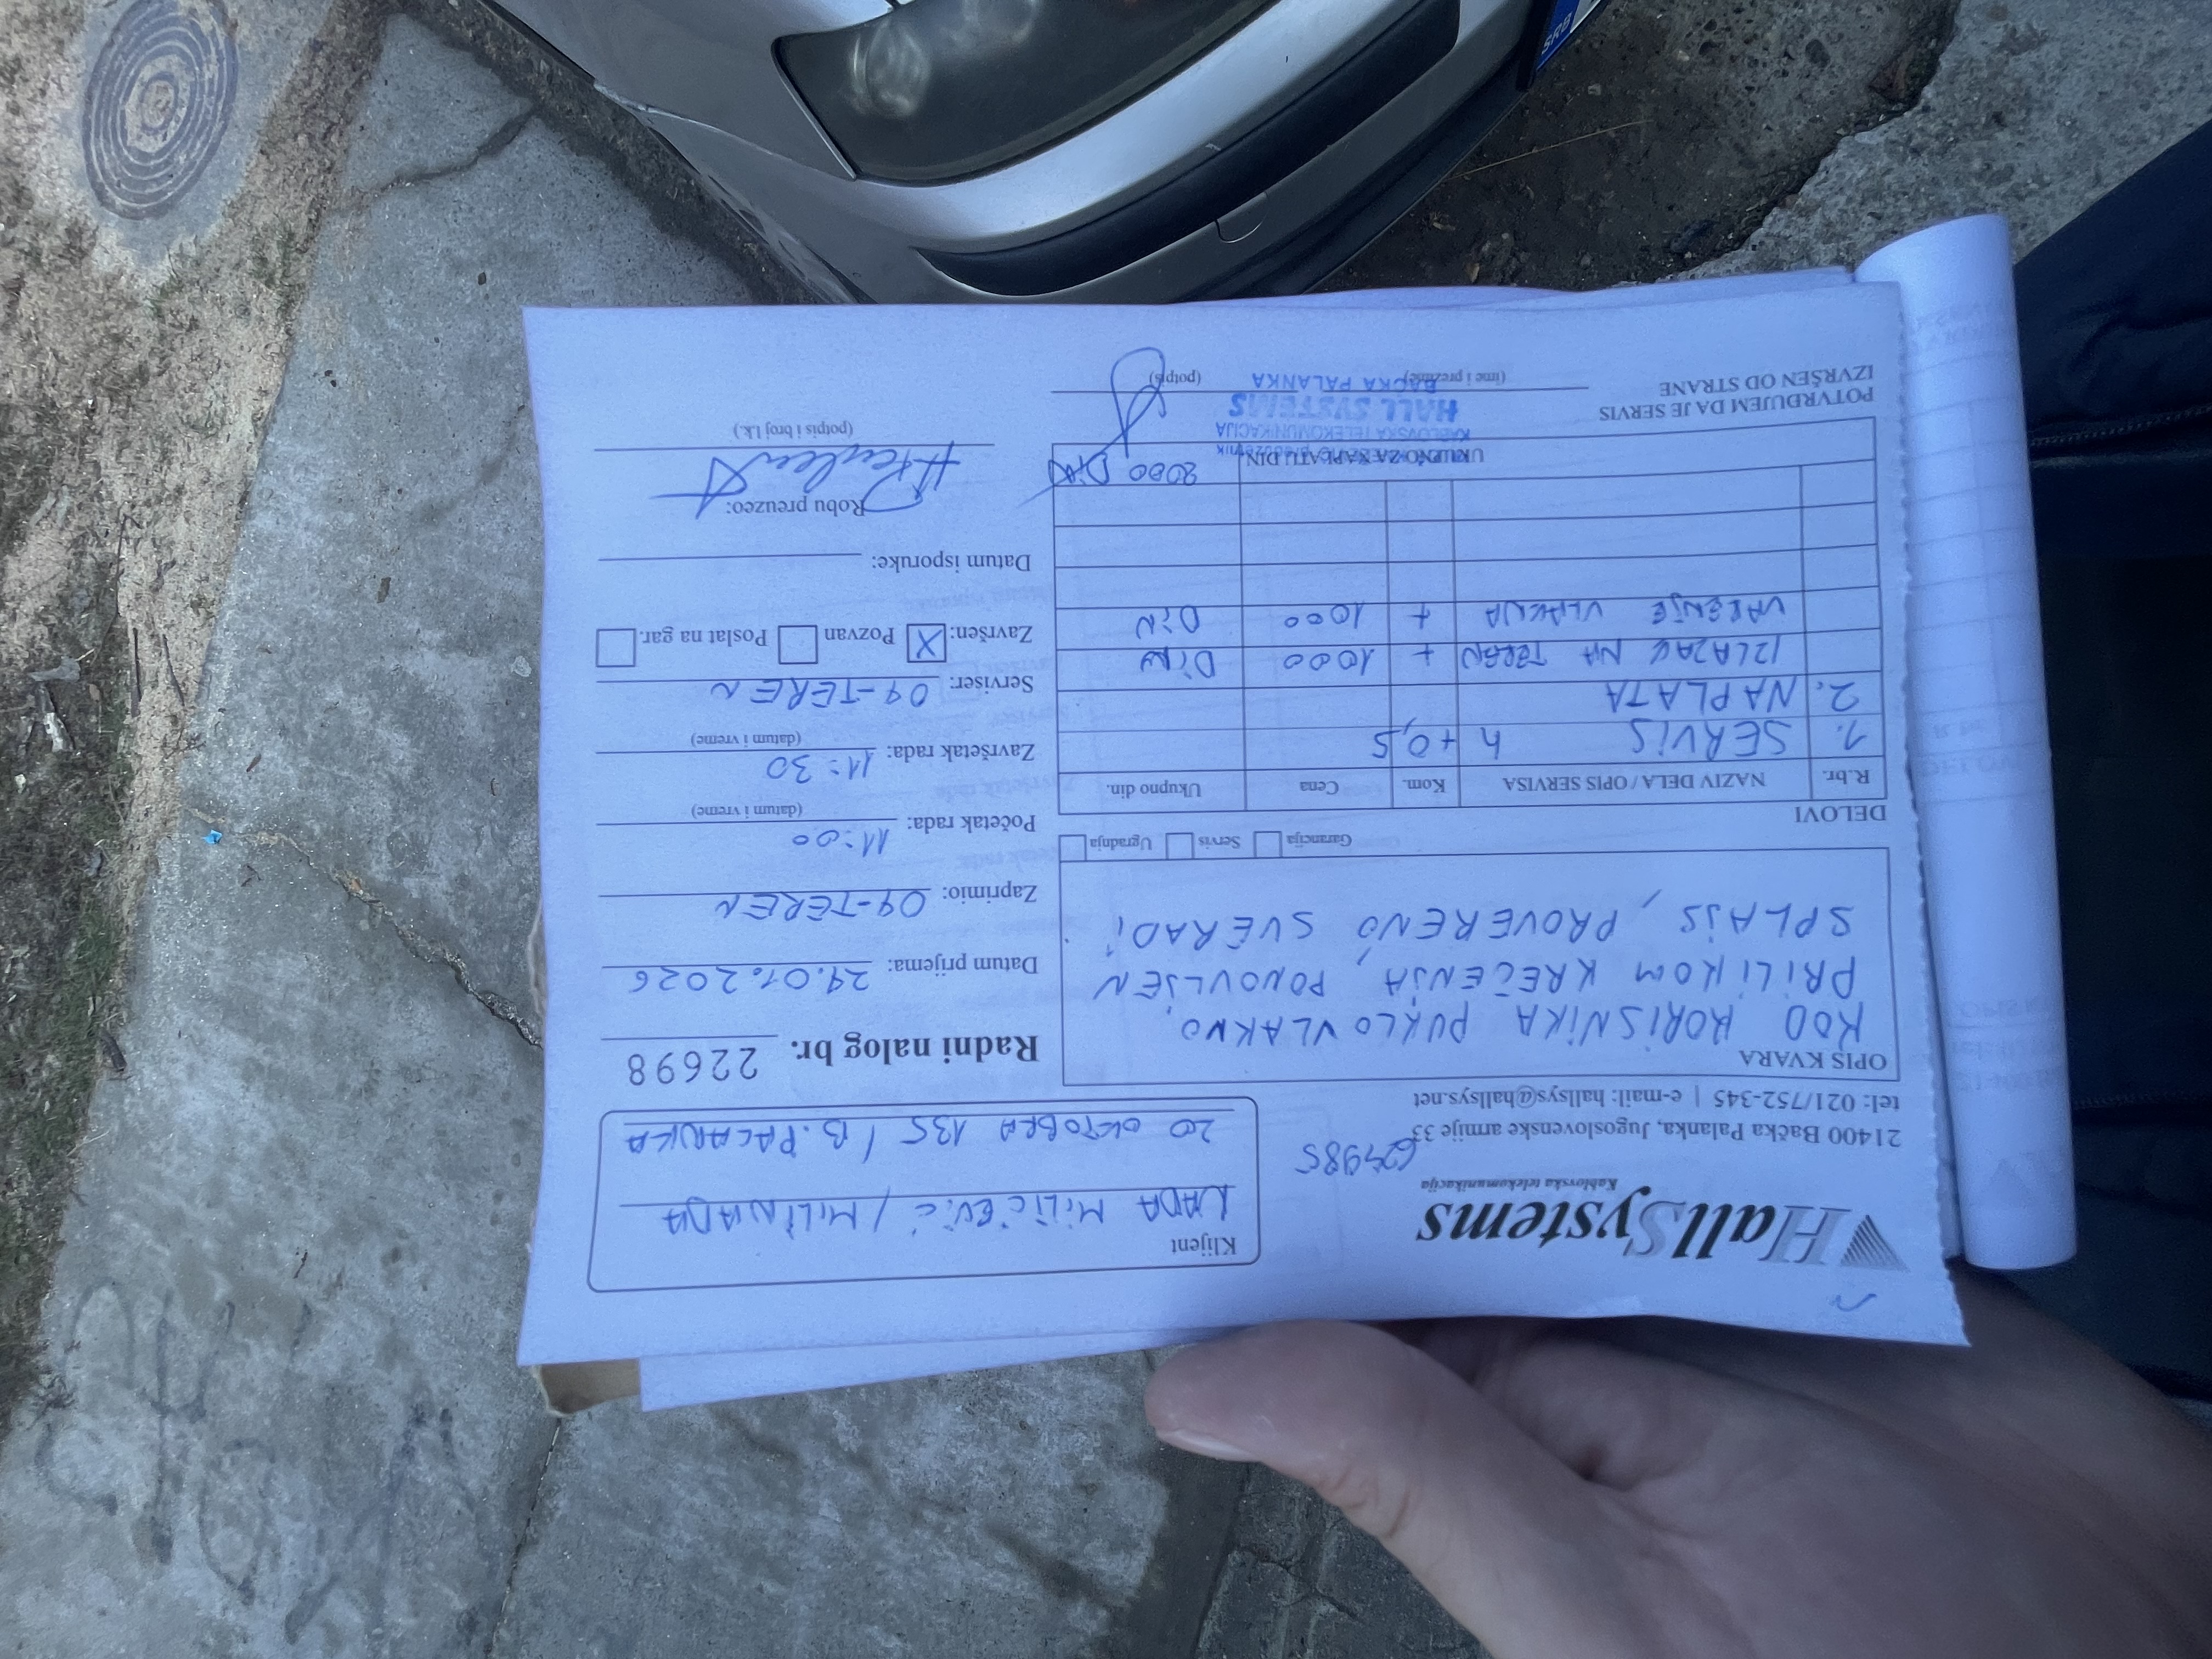 HallSystems
Kablovska telekomunikacija
21400 Bačka Palanka, Jugoslovenske armije 33
tel: 021/752-345 | e-mail: hallsys@hallsys.net
Klijent
NADA MILIĆEVIĆ / MILINADA
20 OKTOBRA 135 / B. PALANKA
OPIS KVARA
KOD KORISNIKA PUKLO VLAKNO,
PRILIKOM KREČENJA, PONOVLJEN
SPLAJS, PROVERENO, SVE RADI
Garancija Servis Ugradnja
Radni nalog br. 22698
Datum prijema: 29.01.2026
Zaprimio: 09-TEREN
Početak rada: 11:00
(datum i vreme)
Završetak rada: 11:30
(datum i vreme)
Serviser: 09-TEREN
Završen: X Pozvan Poslat na gar.
Datum isporuke:
Robu preuzeo:
(potpis i broj l.k.)
DELOVI
R.br. NAZIV DELA / OPIS SERVISA Kom. Cena Ukupno din.
1. SERVIS h +0,5
2. NAPLATA
IZLAZAK NA TEREN + 1000 DIN
VARENJE VLAKNA + 1000 DIN
UKUPNO ZA NAPLATU DIN 2000 DIN
KABLOVSKA TELEKOMUNIKACIJA
HALL SYSTEMS
BAČKA PALANKA
POTVRĐUJEM DA JE SERVIS
IZVRŠEN OD STRANE
(ime i prezime) (potpis)
SRB